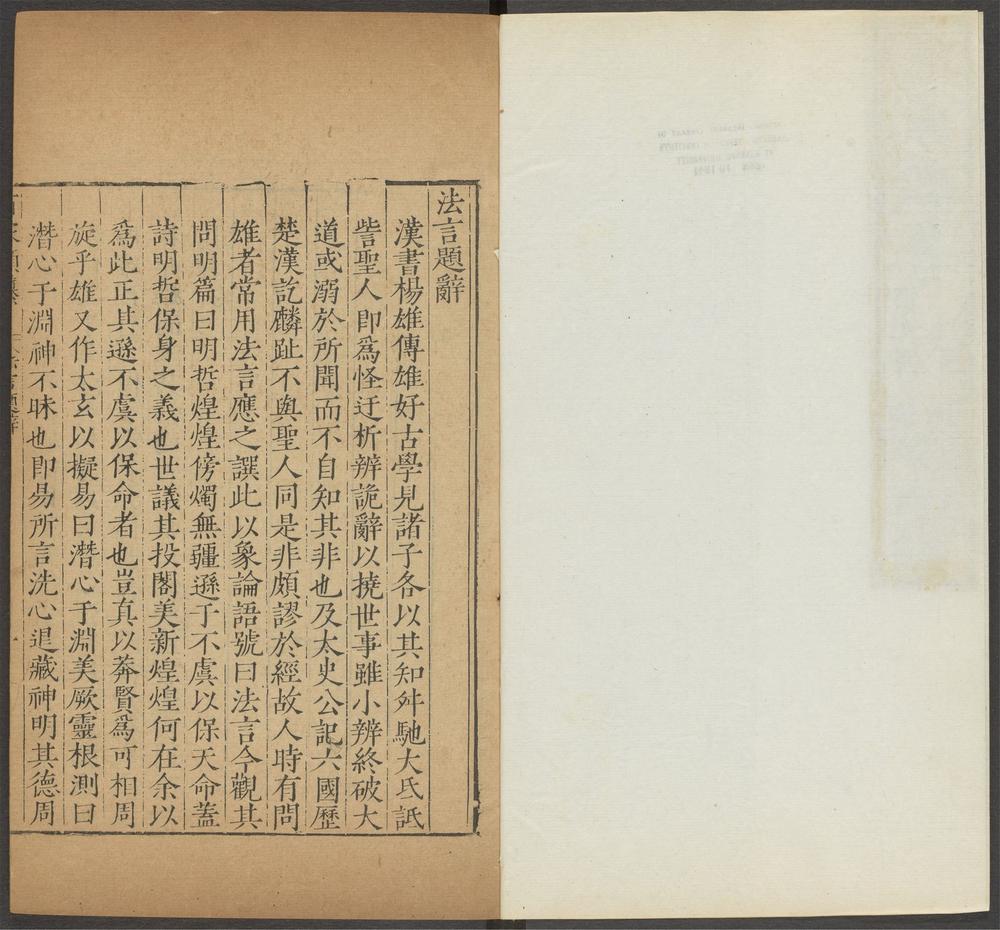 法言題辭
漢書楊雄傳雄好古學見諸子各以其知舛馳大氐詆
訾聖人即爲怪迂析辨詭辭以撓世事雖小辨終破大
道或溺於所聞而不自知其非也及太史公記六國歷
楚漢訖麟趾不與聖人同是非頗謬於經故人時有問
雄者常用法言應之譔此以象論語號曰法言今觀其
問明篇曰明哲煌煌傍燭無疆遜于不虞以保天命蓋
詩明哲保身之義也世議其投閣美新煌煌何在余以
爲此正其遜不虞以保命者也豈真以莽賢爲可相周
旋乎雄又作太玄以擬易曰潛心于淵美厥靈根測曰
潛心于淵神不昧也即易所言洗心退藏神明其德周